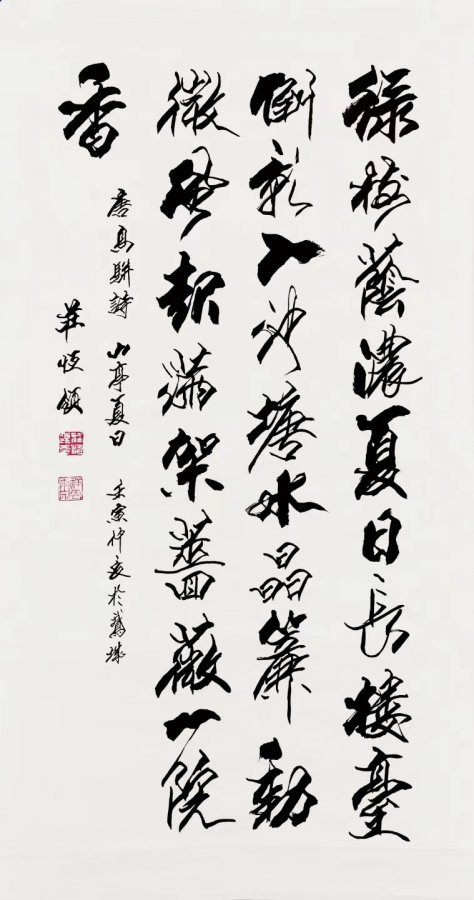 綠樹蔭濃夏日长樓臺
倒影入池塘水晶簾動
微風起滿架薔薇一院
香
唐高駢詩 山亭夏日 壬寅仲夏於鵞城
莊